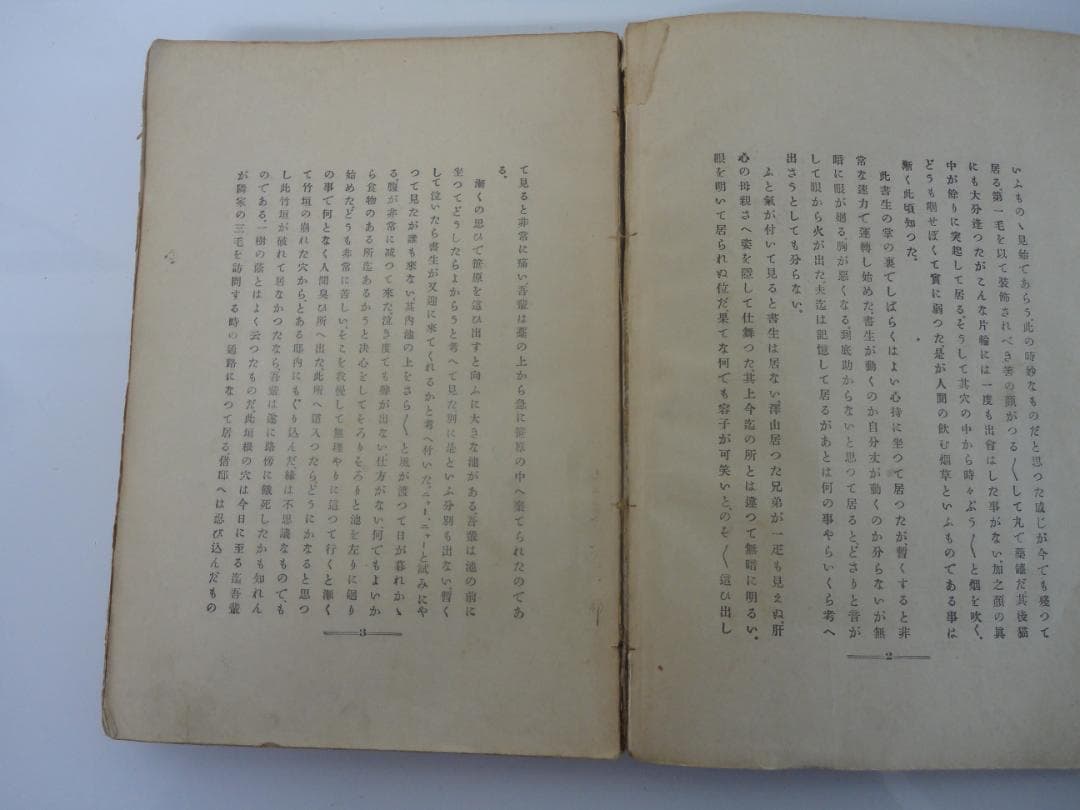 いふものゝ見始であらう。此の時妙なものだと思つた感じが今でも殘つて
居る。第一毛を以て裝飾されべき筈の顏がつる〳〵して丸で藥罐だ。其後猫
にも大分逢つたがこんな片輪には一度も出會はした事がない。加之顏の眞
中が餘りに突起して居る。そうして其穴の中から時々ぷう〳〵と烟を吹く。
どうも咽せぽくて實に弱つた。是が人間の飲む烟草といふものである事は
漸く此頃知つた。
此書生の掌の裏でしばらくはよい心持に坐つて居つたが、暫くすると非
常な速力で運轉し始めた。書生が動くのか自分丈が動くのか分らないが無
暗に眼が廻る。胸が惡くなる。到底助からないと思つて居ると、どさりと音が
して眼から火が出た。夫迄は記憶して居るがあとは何の事やらいくら考へ
出さうとしても分らない。
ふと氣が付いて見ると書生は居ない。澤山居つた兄弟が一疋も見えぬ。肝
心の母親さへ姿を隱して仕舞つた。其上今迄の所とは違つて無暗に明るい。
眼を明いて居られぬ位だ。果てな何でも容子が可笑いと、のそ〳〵這ひ出し
2
て見ると非常に痛い。吾輩は藁の上から急に笹原の中へ棄てられたのであ
る。
漸くの思ひで笹原を這ひ出すと向ふに大きな池がある。吾輩は池の前に
坐つてどうしたらよからうと考へて見た。別に是といふ分別も出ない。暫く
して泣いたら書生が又迎に來てくれるかと考へ付いた。ニャー、ニャーと試みにや
つて見たが誰も來ない。其内池の上をさら〳〵と風が渡つて日が暮れかゝ
る。腹が非常に減つて來た。泣き度ても聲が出ない。仕方がない、何でもよいか
ら食物のある所迄あるかうと決心をしてそろりそろりと池を左りに廻り
始めた。どうも非常に苦しい。そこを我慢して無理やりに這つて行くと漸く
の事で何となく人間臭い所へ出た。此所へ這入つたらどうにかなると思つ
て竹垣の崩れた穴から、とある邸内にもぐり込んだ。緣は不思議なもので、も
し此竹垣が破れて居なかつたなら、吾輩は遂に路傍に餓死したかも知れん
のである。一樹の蔭とはよく云つたものだ。此垣根の穴は今日に至る迄吾輩
が隣家の三毛を訪問する時の通路になつて居る。偖邸へは忍び込んだもの
3